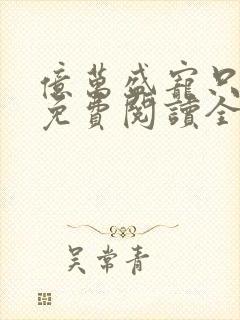 億萬盛寵只
免費閱讀全
吴常青